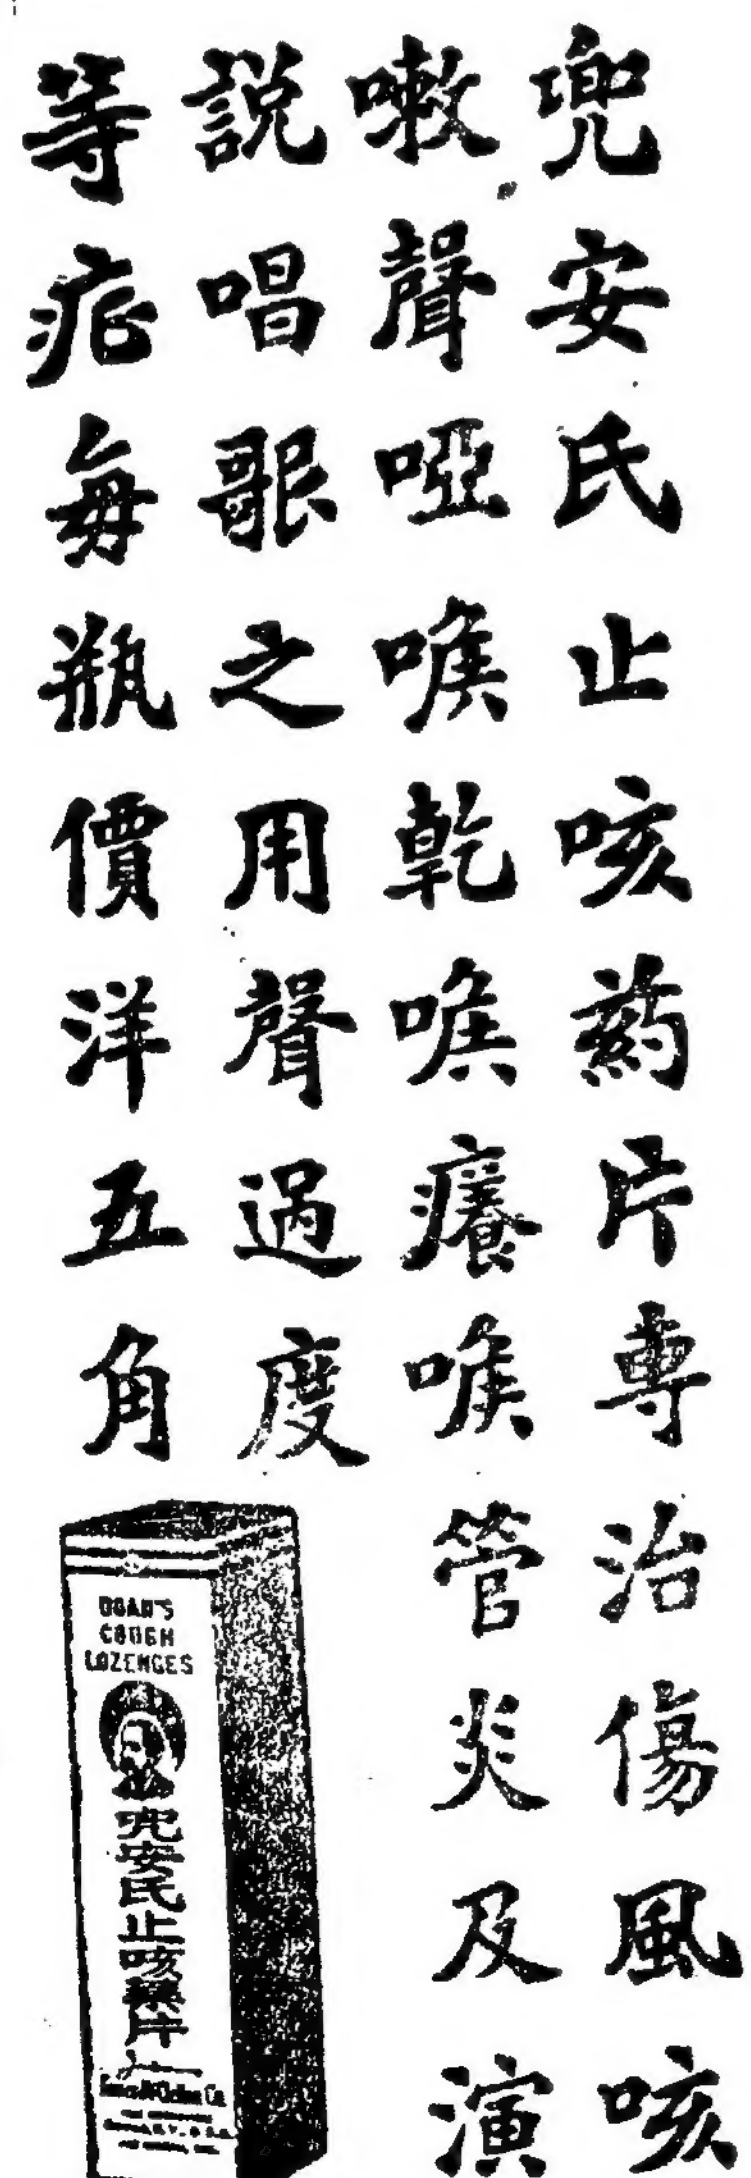 兜安氏止咳葯片專治傷風咳
嗽聲啞喉乾喉癢喉管炎及演
説唱歌之用聲過度
等症每瓶價洋五角
DOAN'S
COUGH
LOZENGES
兜安氏止咳藥片